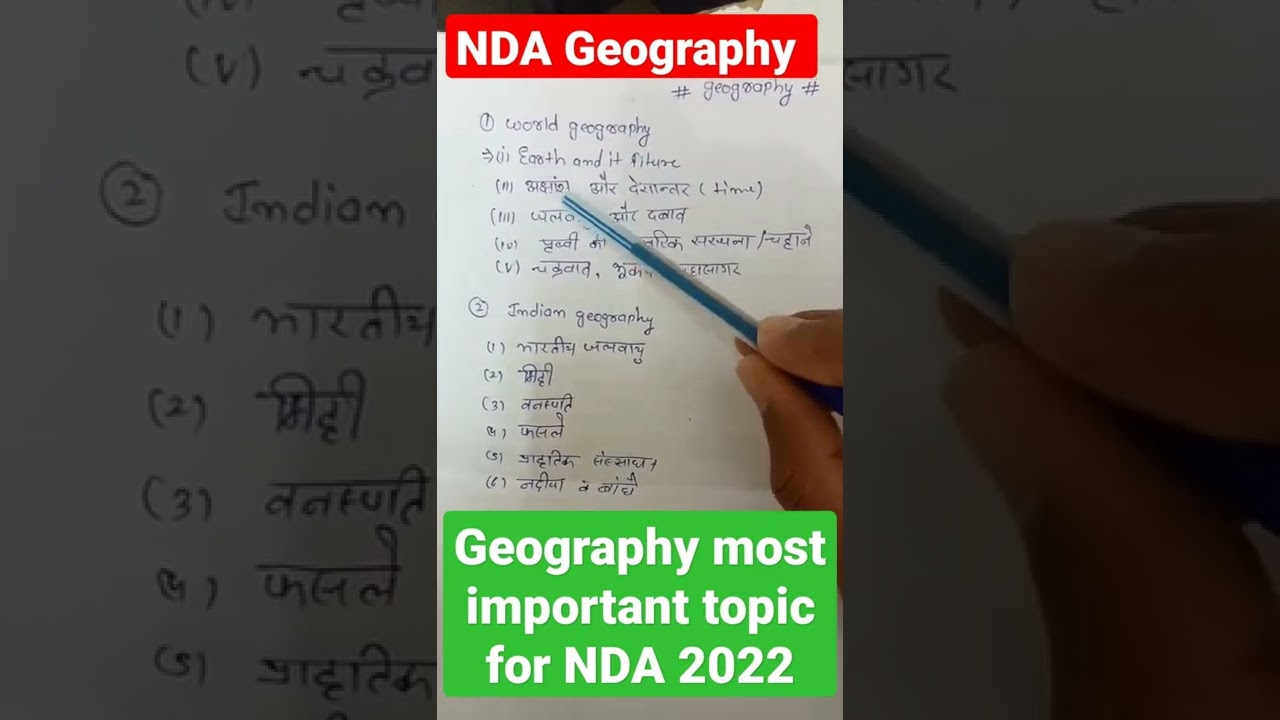 NDA Geography
# geography #
① World geography
→(i) Earth and it fiture
(ii) अक्षांश और देशान्तर (time)
(iii) और दबाव
(iv) पृथ्वी संरचना /चट्टाने
(v) चक्रवात,
② Indian geography
(1) भारतीय जलवायु
(2) मिट्टी
(3) वनस्पति
४) फसले
५) प्राकृतिक
(६) नदीया व बांधे
Geography most
important topic
for NDA 2022